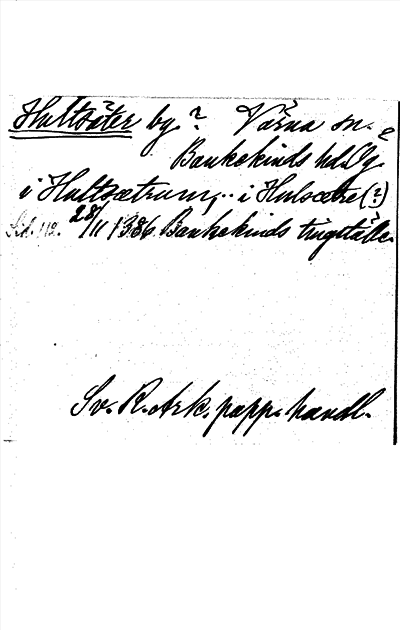 Hultsäter by? Värna sn. ?
Bankekinds hd. Ög.
i Hultsætrum, .. i Hulsætre (?)
28/11 1386 Bankekinds tingställe.
Sv. R. Ark. papp. handl.